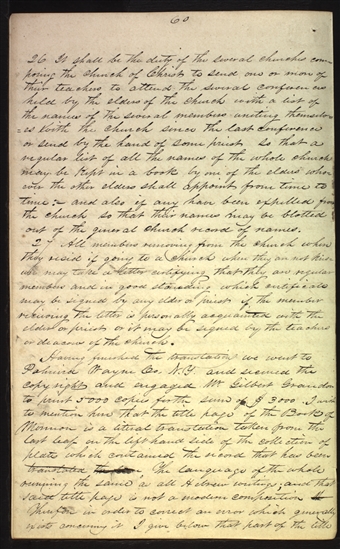 60
26 It shall be the duty of the several churches com-
posing the church of Christ to send one or more of
their teachers to attend the several conferences
held by the elders of the church with a list of
the names of the several members uniting themselves
with the church since the last conference
or send by the hand of some priest so that a
regular list of all the names of the whole church
may be kept in a book by one of the elders whom-
ever the other elders shall appoint from time to
time:– and also if any have been expelled from
the church so that their names may be blotted
out of the general church record of names.
27 All members removing from the church where
they reside if going to a church where they are not kno-
wn may take a letter certifying that they are regular
members and in good standing which certificate
may be signed by any elder or priest if the member
receiving the letter is personally acquainted with the
elder or priest or it may be signed by the teachers
or deacons of the church.
Having finished the translation we went to
Palmira Wayne Co. N.Y and secured the
copy right and engaged Mr Gilbert Grandin
to print 5000 copies for the sum of $ 3000. I wish
to mention here that the title page of the Book of
Mormon is a literal translation taken from the
last leaf on the left hand side of the collection of
plates which contained the record that has been
translated The Language of the whole
running the same as all Hebrew writing and that
said title page is not a modern composition
Therefore in order to correct an error which generally
exists concerning it I give below that part of the title